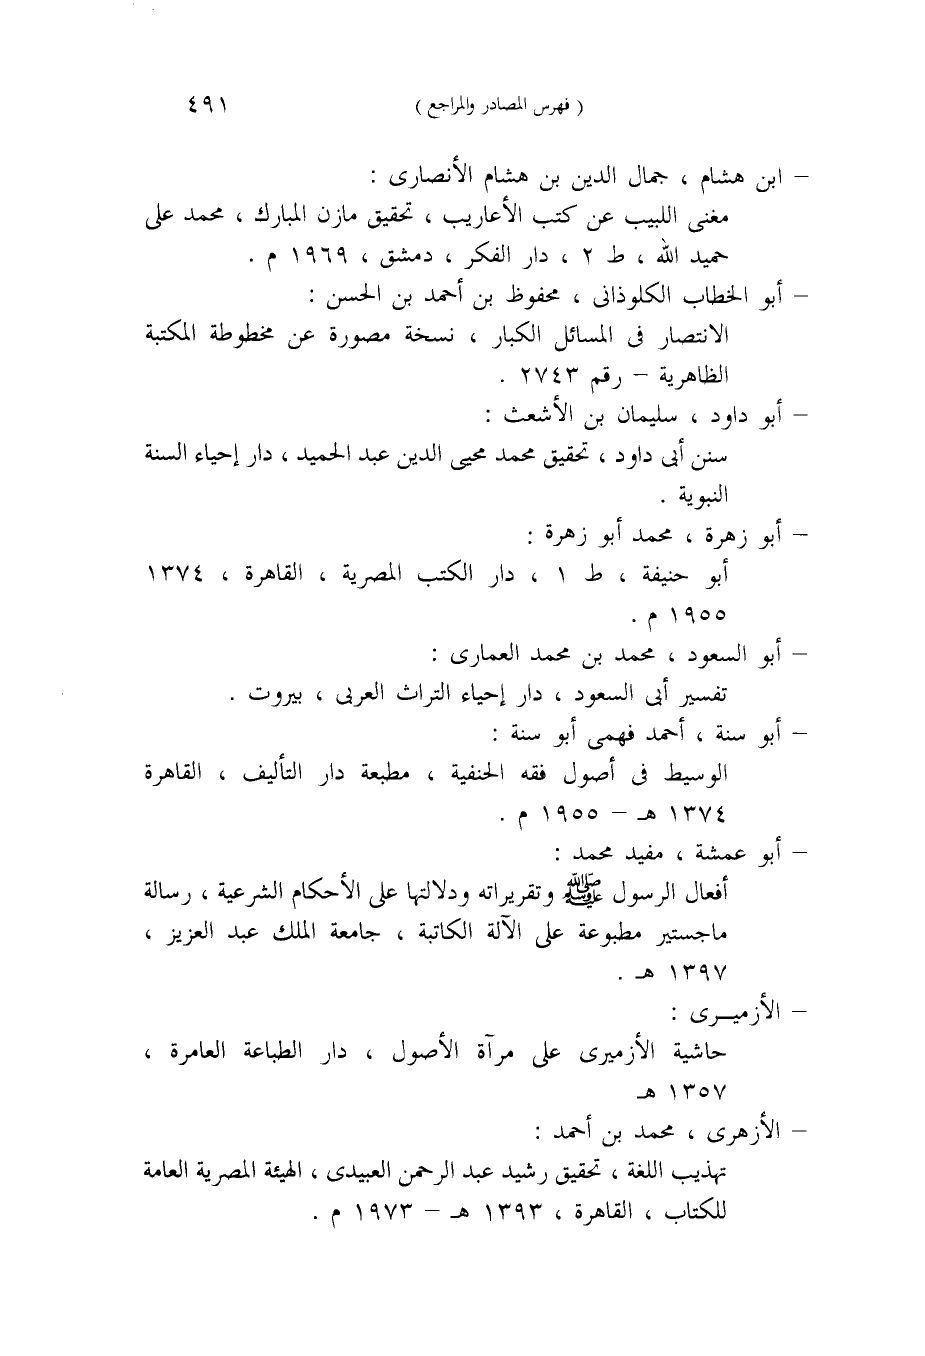 ( فهرس المصادر والمراجع ) ٤٩١
– ابن هشام ، جمال الدين بن هشام الأنصارى :
مغنى اللبيب عن كتب الأعاريب ، تحقيق مازن المبارك ، محمد على
حميد الله ، ط ٢ ، دار الفكر ، دمشق ، ١٩٦٩ م .
– أبو الخطاب الكلوذانى ، محفوظ بن أحمد بن الحسن :
الانتصار فى المسائل الكبار ، نسخة مصورة عن مخطوطة المكتبة
الظاهرية – رقم ٢٧٤٣ .
– أبو داود ، سليمان بن الأشعث :
سنن أبى داود ، تحقيق محمد محيى الدين عبد الحميد ، دار إحياء السنة
النبوية .
– أبو زهرة ، محمد أبو زهرة :
أبو حنيفة ، ط ١ ، دار الكتب المصرية ، القاهرة ، ١٣٧٤
١٩٥٥ م .
– أبو السعود ، محمد بن محمد العمارى :
تفسير أبى السعود ، دار إحياء التراث العربى ، بيروت .
– أبو سنة ، أحمد فهمى أبو سنة :
الوسيط فى أصول فقه الحنفية ، مطبعة دار التأليف ، القاهرة
١٣٧٤ هـ – ١٩٥٥ م .
– أبو عمشة ، مفيد محمد :
أفعال الرسول ﷺ وتقريراته ودلالتها على الأحكام الشرعية ، رسالة
ماجستير مطبوعة على الآلة الكاتبة ، جامعة الملك عبد العزيز ،
١٣٩٧ هـ .
– الأزميـرى :
حاشية الأزميرى على مرآة الأصول ، دار الطباعة العامرة ،
١٣٥٧ هـ
– الأزهرى ، محمد بن أحمد :
تهذيب اللغة ، تحقيق رشيد عبد الرحمن العبيدى ، الهيئة المصرية العامة
للكتاب ، القاهرة ، ١٣٩٣ هـ – ١٩٧٣ م .